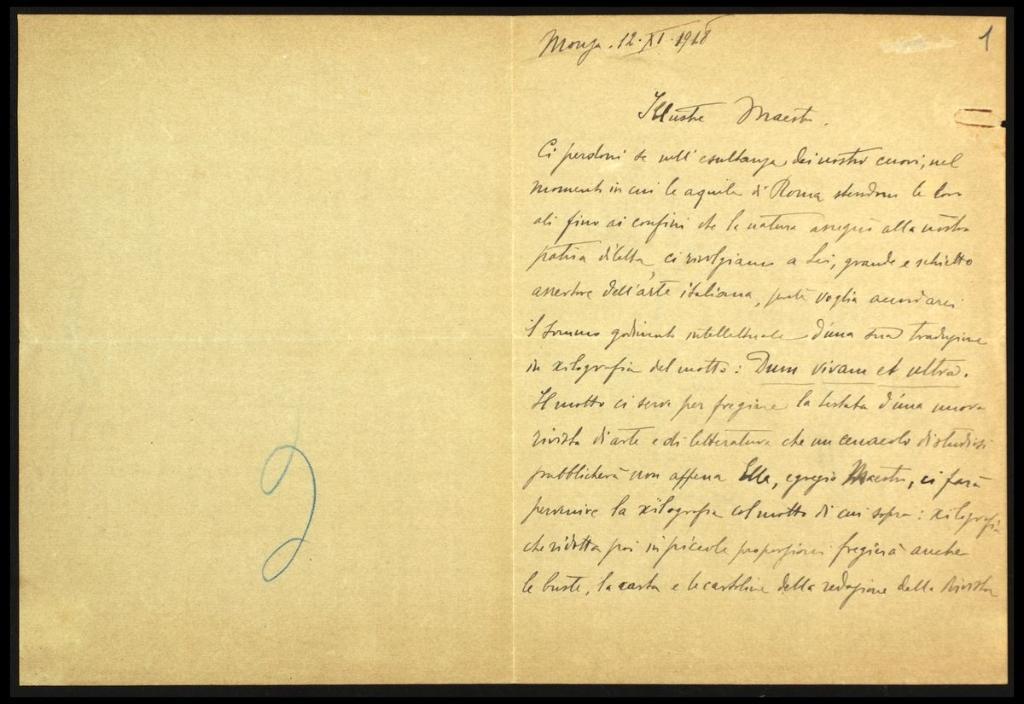 Monza. 12. XI. 1918
1
Illustre Maestro.
Ci perdoni se nell'esultanza dei nostri cuori, nel
momento in cui le aquile di Roma stendono le loro
ali fino ai confini che la natura assegnò alla nostra
patria diletta, ci rivolgiamo a Lei, grande e schietto
assertore dell'arte italiana, perché voglia accordarci
il sommo godimento intellettuale d'una sua traduzione
in xilografia del motto: Dum vivam et ultra.
Il motto ci serve per fregiare la testata d'una nuova
rivista di arte e di letteratura che un cenacolo di studiosi
pubblicherà non appena Ella, egregio Maestro, ci farà
pervenire la xilografia col motto di cui sopra: xilografia
che ridotta poi in piccole proporzioni fregierà anche
le buste, la carta e le cartoline della redazione della Rivista